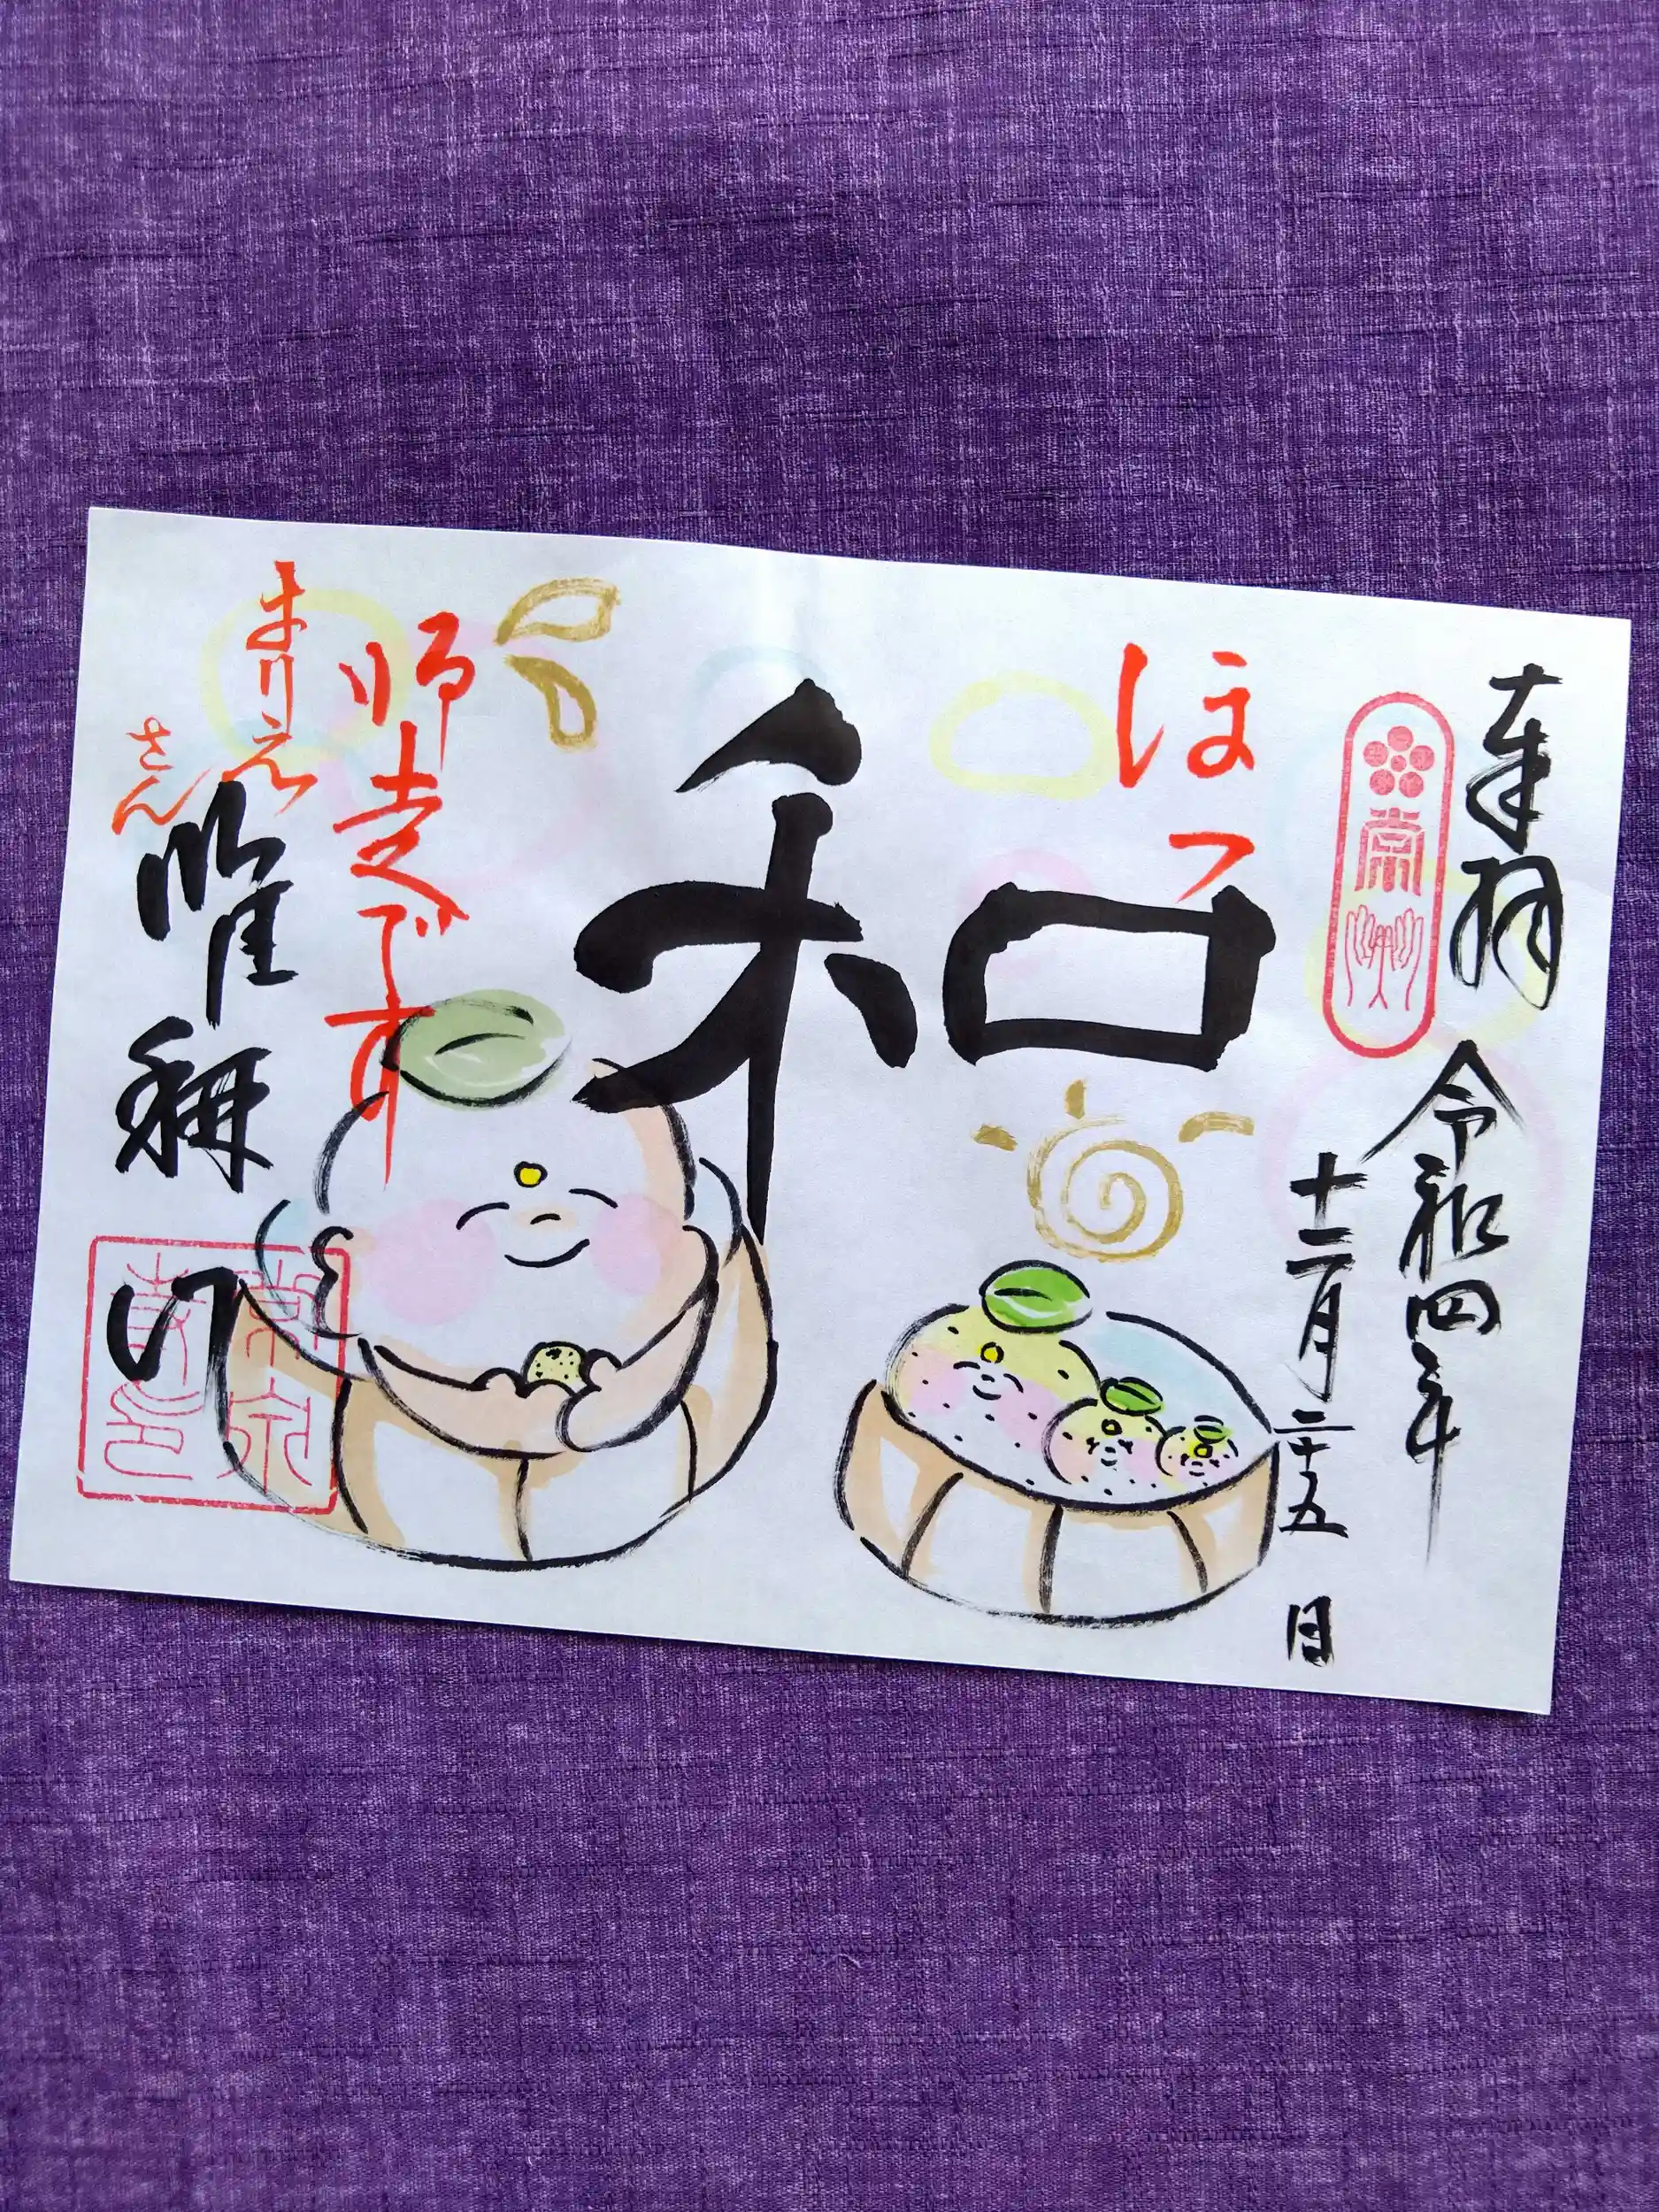 奉拝
令和四年
十二月二十五日
常州
ほっ
和
師走です
まりえ
さん
唯称